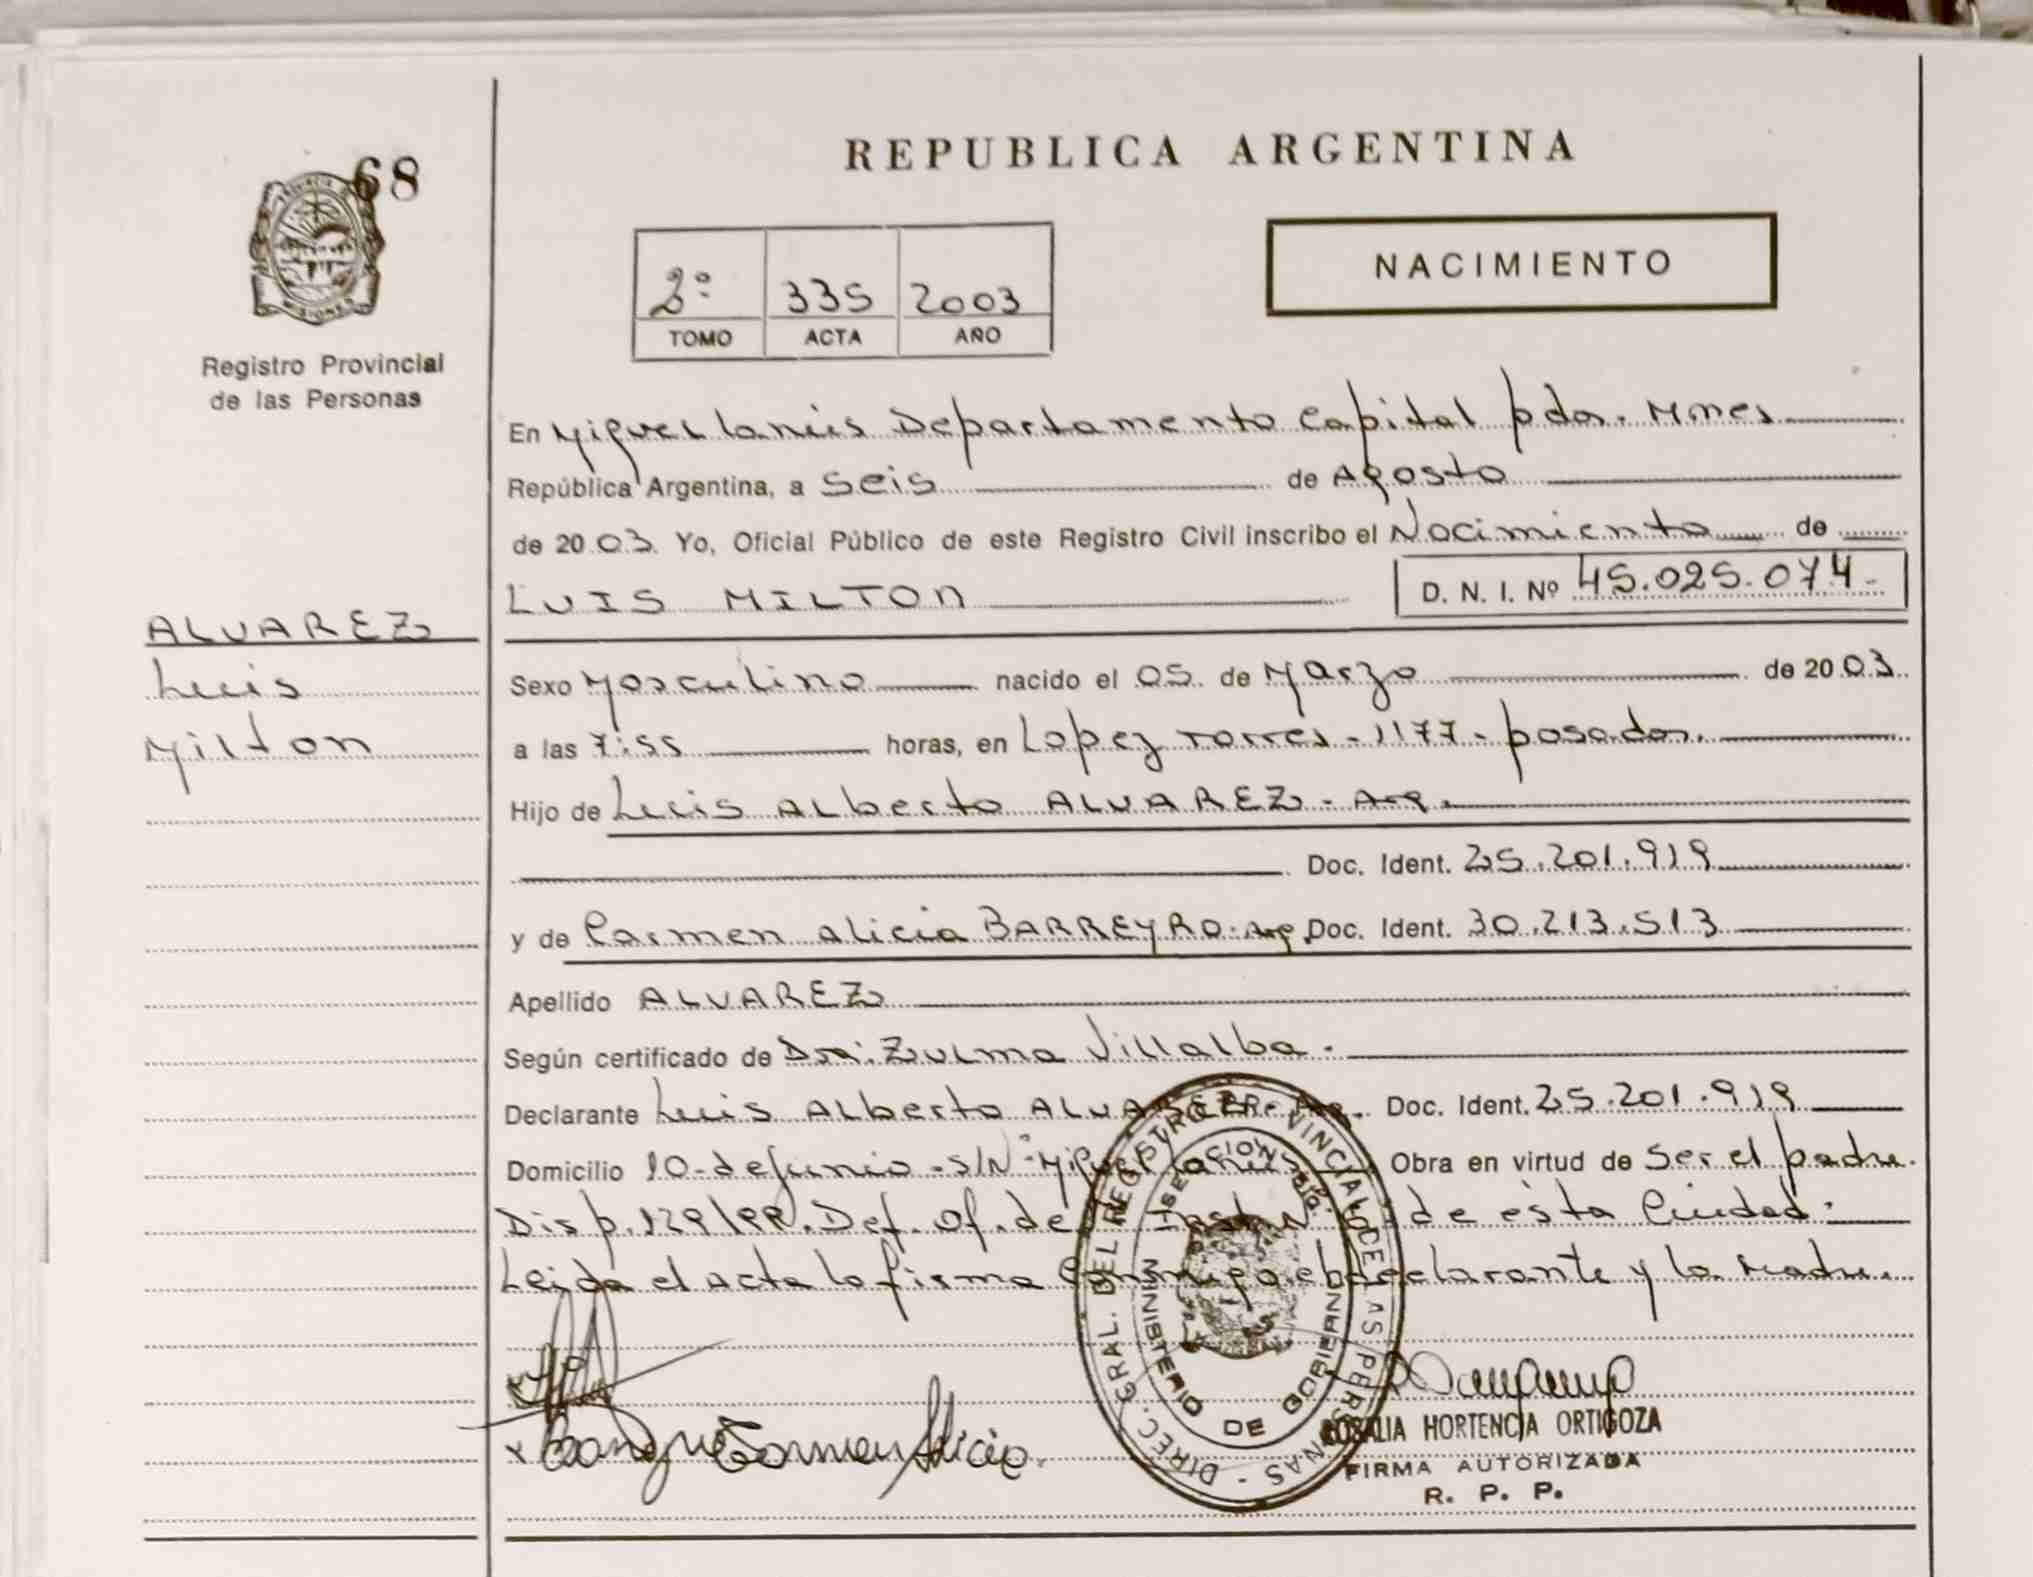 68
PROVINCIA DE
MISIONES
Registro Provincial
de las Personas
REPUBLICA ARGENTINA
2º 335 2003
TOMO ACTA AÑO
NACIMIENTO
En Miguel Lanús Departamento Capital pdas. Mnes
República Argentina, a seis de Agosto
de 2003. Yo, Oficial Público de este Registro Civil inscribo el Nacimiento de
LUIS MILTON D. N. I. Nº 45.025.074.-
ALVAREZ
Luis
Milton
Sexo Masculino nacido el 05 de Marzo de 2003
a las 7:55 horas, en Lopez Torres - 1177 - posadas.
Hijo de Luis Alberto ALVAREZ - Arg.
Doc. Ident. 25.201.919
y de Carmen Alicia BARREYRO - Arg. Doc. Ident. 30.213.513
Apellido ALVAREZ
Según certificado de Dra: Zulma Villalba.
Declarante Luis Alberto ALVAREZ - Arg. Doc. Ident. 25.201.919
Domicilio 10 de Junio - S/Nº Miguel Lanús Obra en virtud de ser el padre.
Disp. 129/ Def. Of. de de esta Ciudad.
Leida el Acta la firma conmigo el declarante y la madre.
DIREC. GRAL. DEL REGISTRO PROVINCIAL DE LAS PERSONAS -
MINISTERIO DE GOBIERNO
Carmen Alicia
ROSALIA HORTENCIA ORTIGOZA
FIRMA AUTORIZADA
R. P. P.